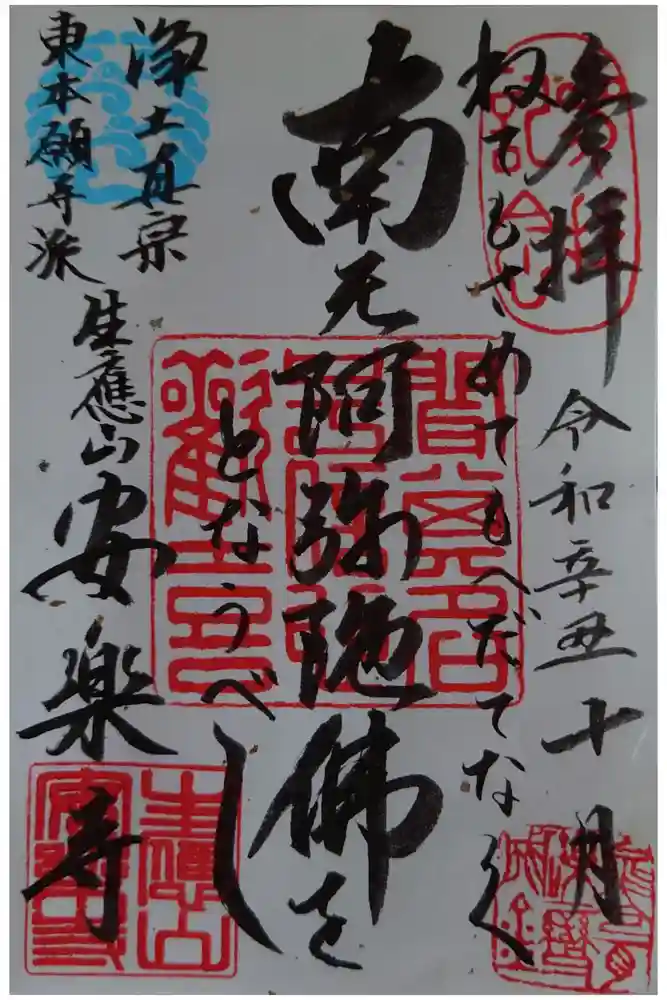 参拝
令和辛丑十月
ねてもさめてもへだてなく
南无阿弥陁佛を
となうべし
浄土真宗
東本願寺派
生應山
安樂寺
記念
生應山
安樂寺